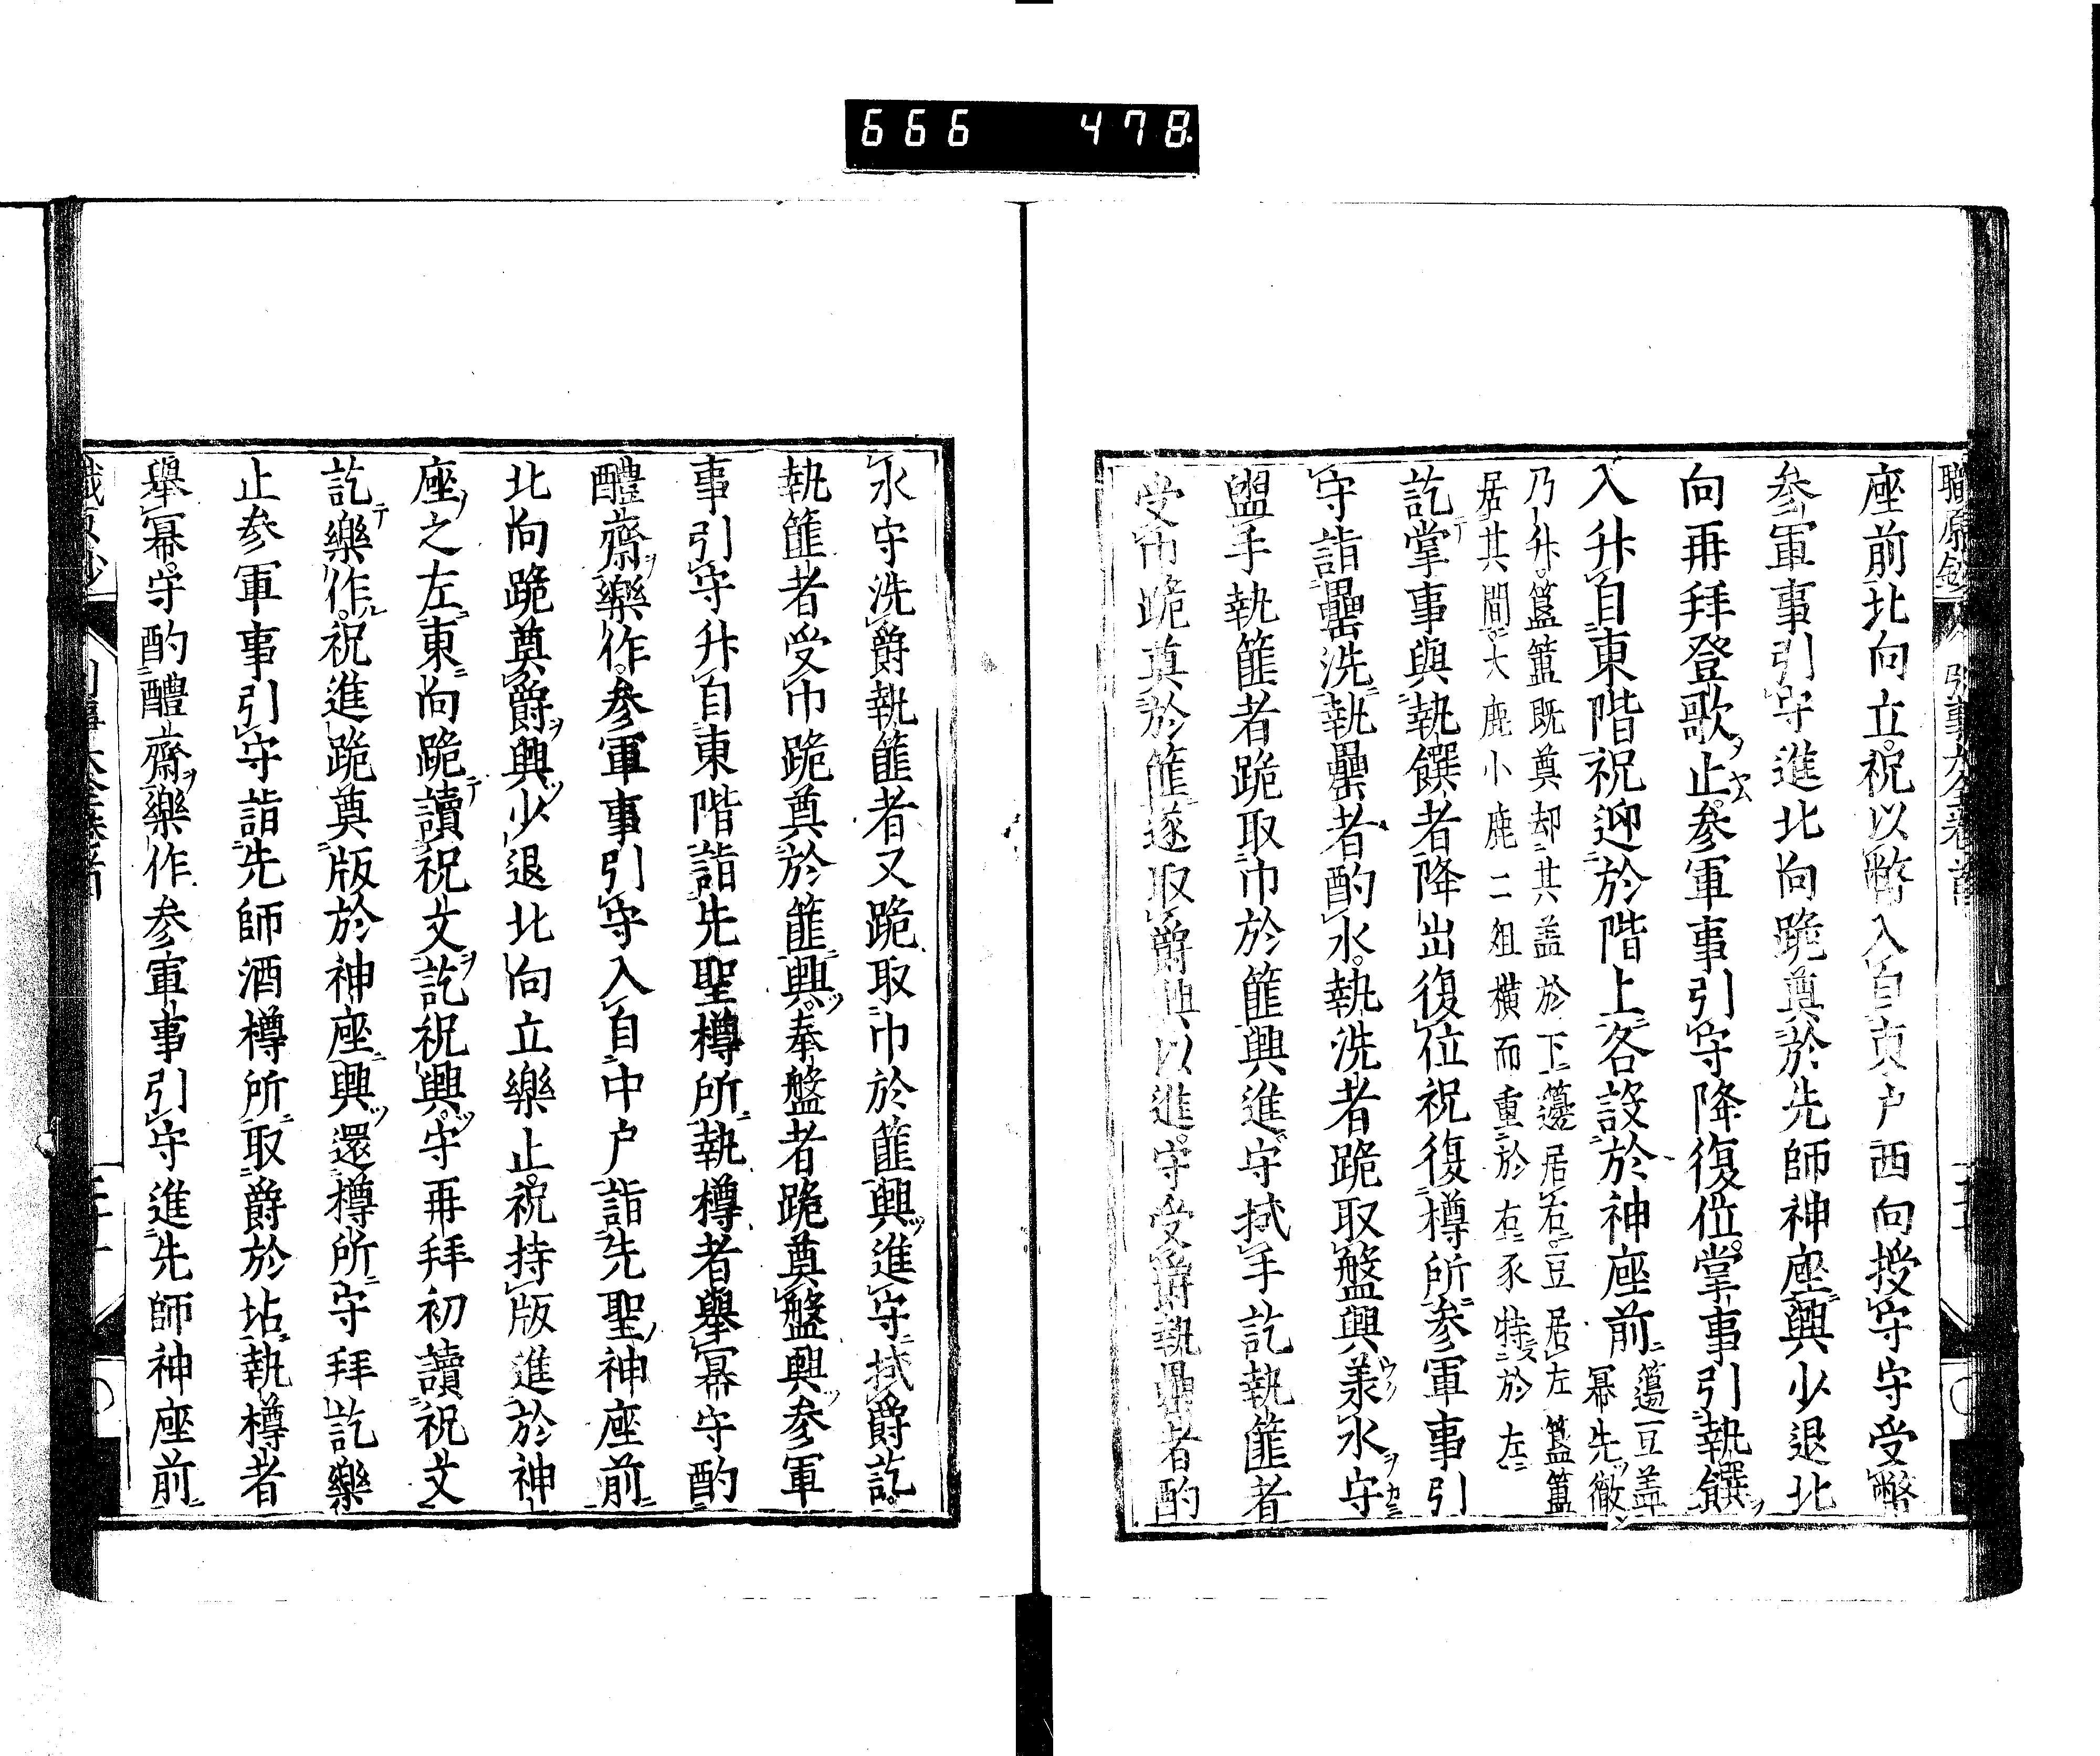 666 478
座前北向立祝以幣入自東户西向授守守受幣
参軍事引守進北向跪奠於先師神座興少退北
向再拜登歌止参軍事引守降復位掌事引執饌
入升自東階祝迎於階上各設於神座前籩豆盖
冪先徹
乃升簋簠既奠却其盖於下籩居右豆居左簋簠
居其間大鹿小鹿二俎横而重於右豕特於左
訖掌事與執饌者降出復位祝復樽所参軍事引
守詣罍洗執罍者酌水執洗者跪取盤興羕水守
盥手執篚者跪取巾於篚興進守拭手訖執篚者
受巾跪奠於篚遂取爵興以進守受爵執罍者酌
水守洗爵執篚者又跪取巾於篚興進守拭爵訖
執篚者受巾跪奠於篚興奉盤者跪奠盤興参軍
事引守升自東階詣先聖樽所執樽者舉冪守酌
醴齋樂作参軍事引守入自中户詣先聖神座前
北向跪奠爵興少退北向立樂止祝持版進於神
座之左東向跪讀祝文訖祝興守再拜初讀祝文
訖樂作祝進跪奠版於神座興還樽所守拜訖樂
止参軍事引守詣先師酒樽所取爵於坫執樽者
舉冪守酌醴齋樂作参軍事引守進先師神座前